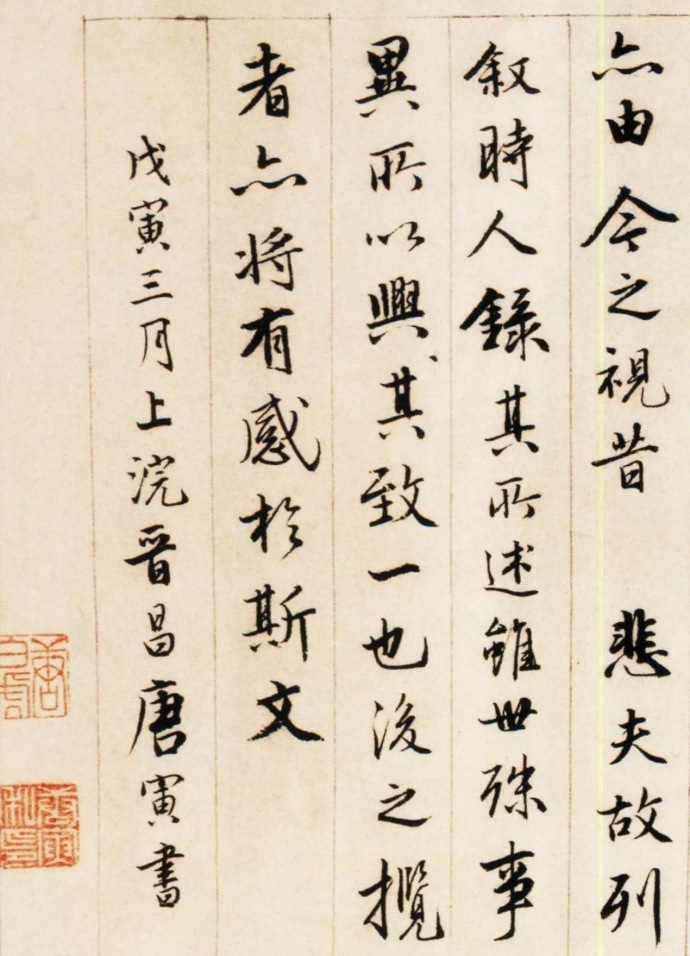 亦由今之視昔 悲夫故列
叙時人錄其所述雖世殊事
異所以興其致一也後之攬
者亦将有感於斯文
戊寅三月上浣晉昌唐寅書